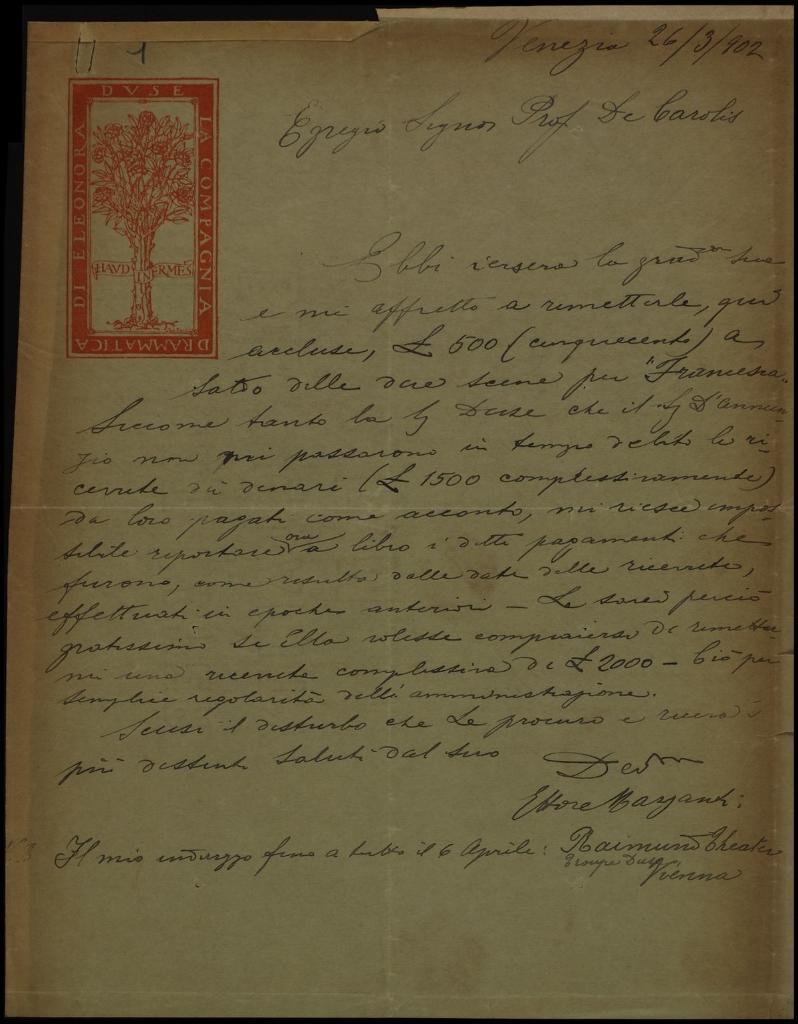 1
Venezia 26/3/902
DRAMMATICA COMPAGNIA DI ELEONORA DVSE LA
HAVD INERMES
Egregio Signor Prof. De Carolis
Ebbi iersera la grad.ma sua
e mi affretto a rimetterle, qui
accluse, £ 500 (cinquecento) a
saldo delle due scene per "Francesca"
Siccome tanto la Sg Duse che il Sg D'Annun-
zio non mi passarono in tempo debito le ri-
cevute dei denari (£ 1500 complessivamente)
da loro pagati come acconto, mi riesce impos-
sibile riportare ora a libro i detti pagamenti che
furono, come risulta dalle date delle ricevute,
effettuati in epoche anteriori - Le sarei perciò
gratissimo se Ella volesse compiacersi di rimetter-
mi una ricevuta complessiva di £ 2000 - Ciò per
semplice regolarità dell'amministrazione.
Scusi il disturbo che Le procuro e riceva i
più distinti saluti dal suo
Dev.mo
Ettore Mazzanti
Il mio indirizzo fino a tutto il 6 Aprile: Raimund Theater
Troupe Duse
Vienna